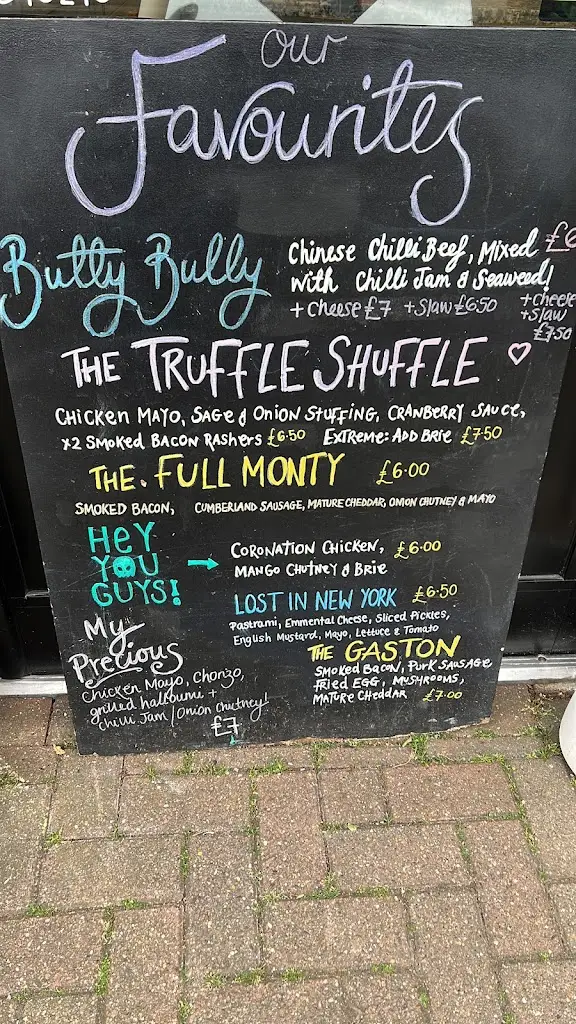 Our
Favourites
Butty Bully
Chinese Chilli Beef, Mixed £6
with Chilli Jam & Seaweed!
+ cheese £7 + slaw £6.50
+ cheese
+ slaw
£7.50
THE TRUFFLE SHUFFLE ♡
CHICKEN MAYO, SAGE & ONION STUFFING, CRANBERRY SAUCE,
x2 SMOKED BACON RASHERS £6.50 EXTREME: ADD BRIE £7.50
THE. FULL MONTY £6.00
SMOKED BACON, CUMBERLAND SAUSAGE, MATURE CHEDDAR, ONION CHUTNEY & MAYO
HEY
YOU
GUYS!
→ CORONATION CHICKEN, £6.00
MANGO CHUTNEY & BRIE
LOST IN NEW YORK £6.50
Pastrami, Emmental Cheese, Sliced Pickles,
English Mustard, Mayo, Lettuce & Tomato
My
Precious
Chicken Mayo, Chorizo,
grilled halloumi +
Chilli Jam / Onion Chutney!
£7
THE GASTON
SMOKED BACON, PORK SAUSAGE
FRIED EGG, MUSHROOMS,
MATURE CHEDDAR £7.00